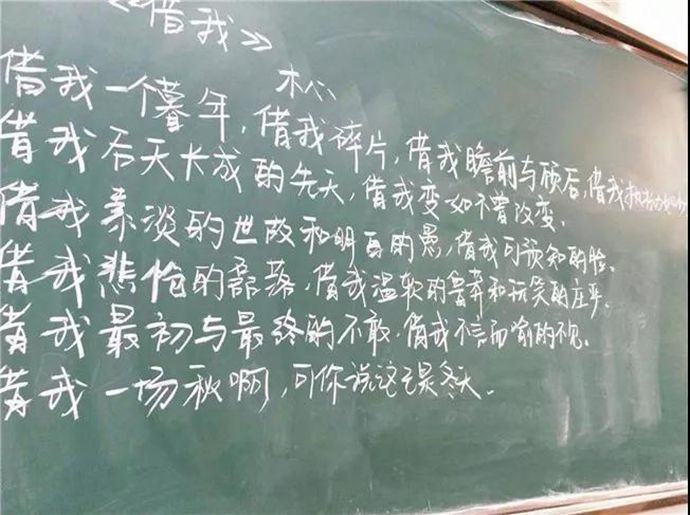 《借我》
木心
借我一个暮年，借我碎片，借我瞻前与顾后，借我执拗如少
借我后天长成的先天，借我变如不曾改变。
借我素淡的世故和明白的愚，借我可预知的脸。
借我悲怆的磊落，借我温软的鲁莽和玩笑的庄严。
借我最初与最终的不敢，借我不言而喻的不见。
借我一场秋啊，可你说这已是冬天。